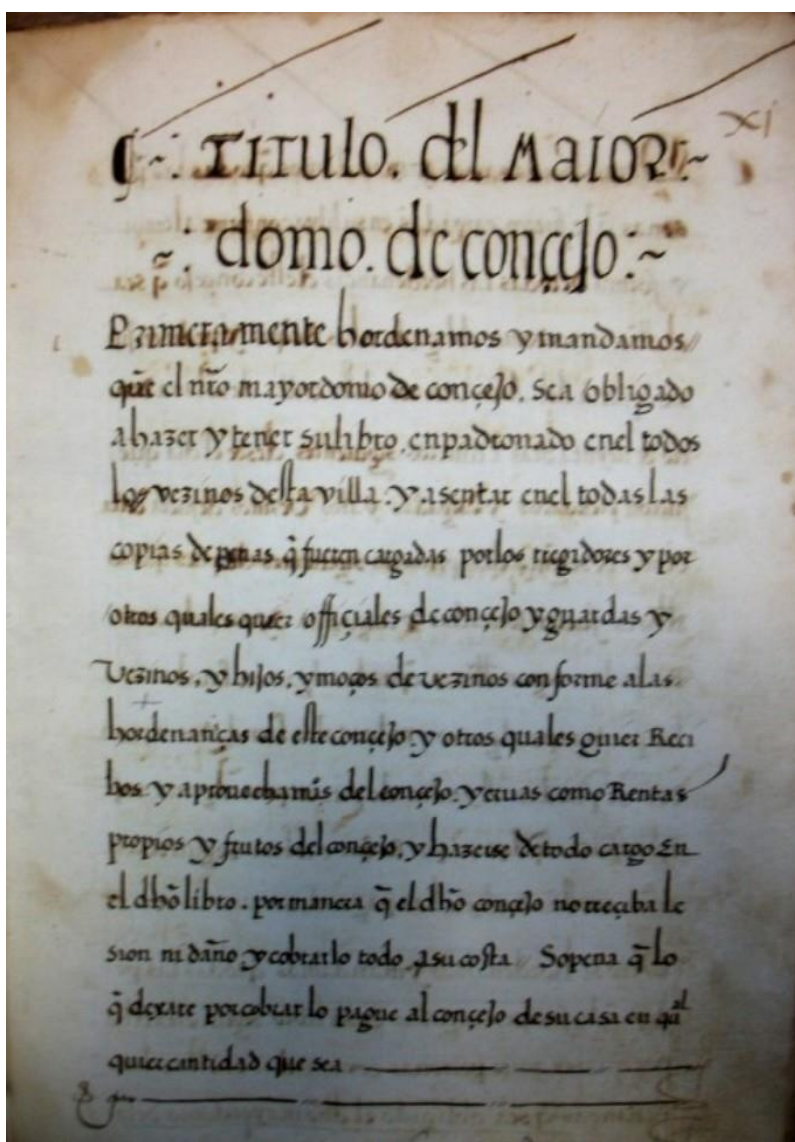 xj
~: Titulo. del Maior:~
~: domo. de conçejo:~
Primeramente hordenamos y mandamos
que el nr̃o mayordomo de conçejo. sea obligado
a hazer y tener su libro. enpadronado enel todos
los vezinos desta villa. y asentar enel todas las
copias de penas q̃ fueren cargadas por los rregidores y por
otros quales quier offiçiales de conçejo y guardas y
vezinos. y hijos. y moços de vezinos conforme a las
hordenanças de este conçejo. y otros quales quier Reçi
bos y aprouechamis̃ del conçejo. yeruas como Rentas
propios y frutos del conçejo. y hazerse de todo cargo En
el dhõ libro. por manera q̃ el dhõ conçejo no rreçiba le
sion ni daño y cobrarlo todo a su costa Sopena q̃ lo
q̃ dexare por cobrar lo pague al conçejo de su casa en qual
quier cantidad que sea